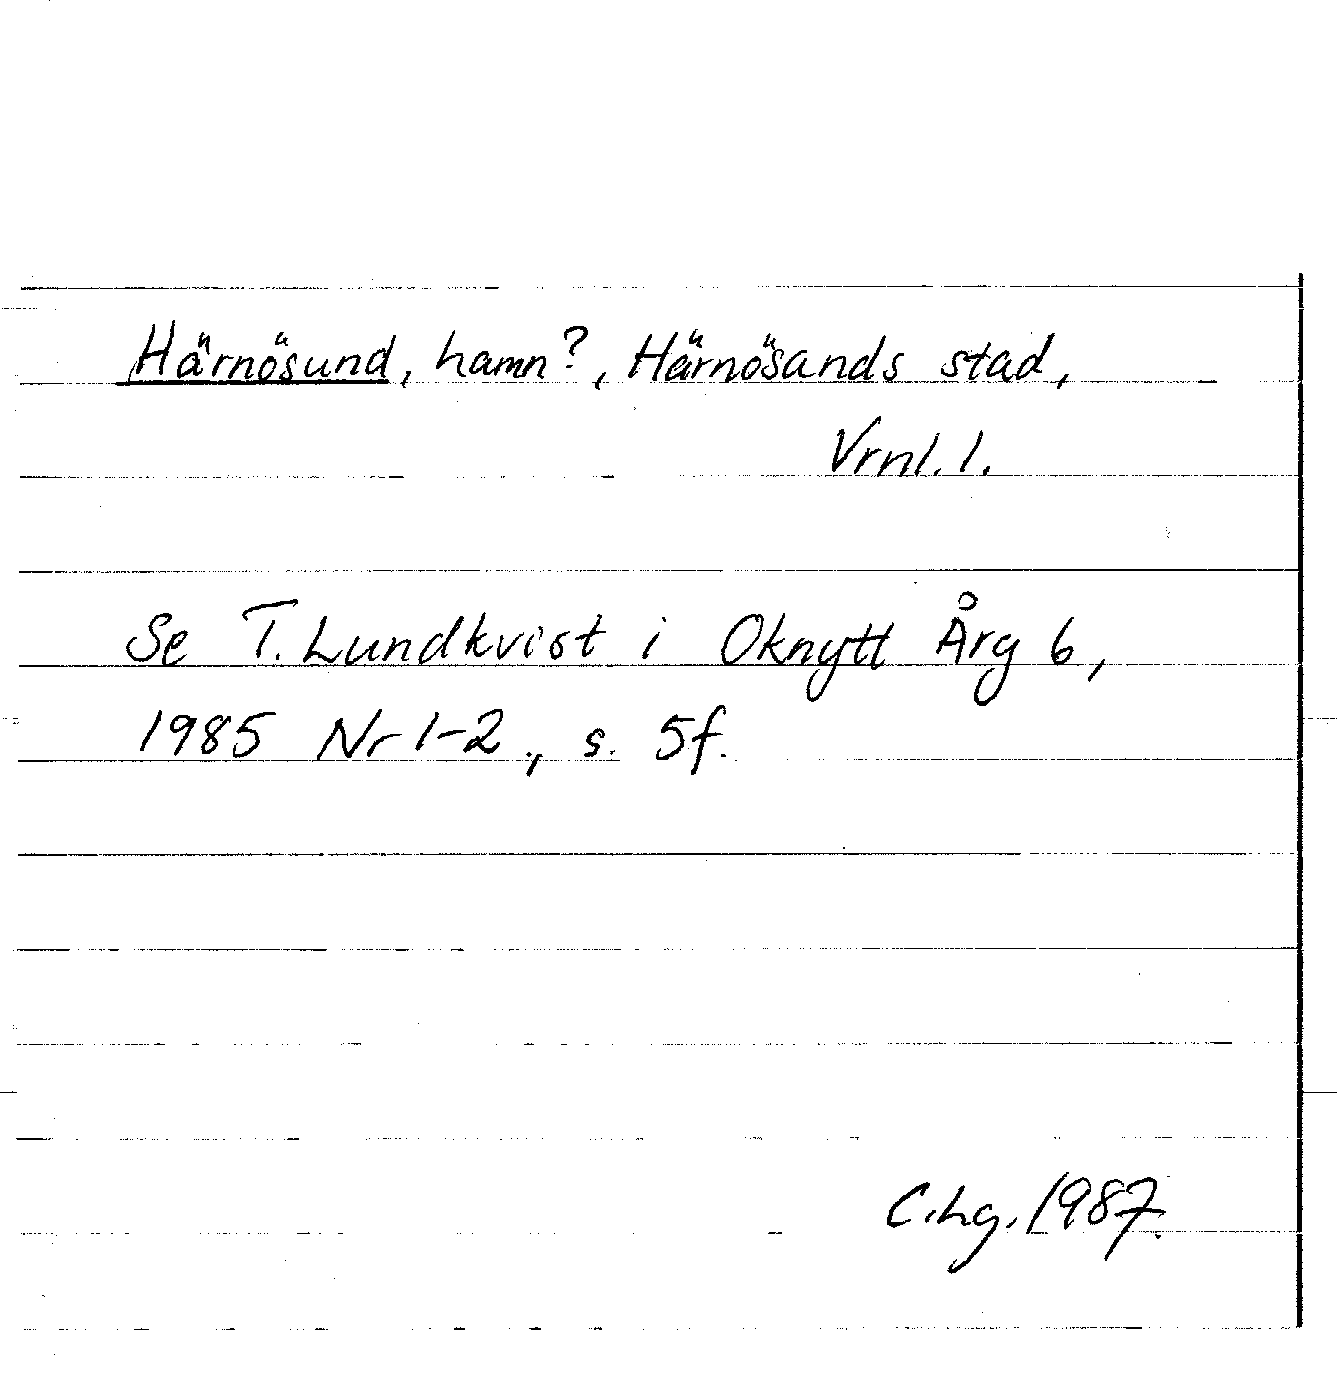 Härnösund, hamn?, Härnösands stad,
Vrnl. l.
Se T. Lundkvist i Oknytt Årg 6,
1985 Nr 1-2., s. 5f.
C.Lg. 1987.